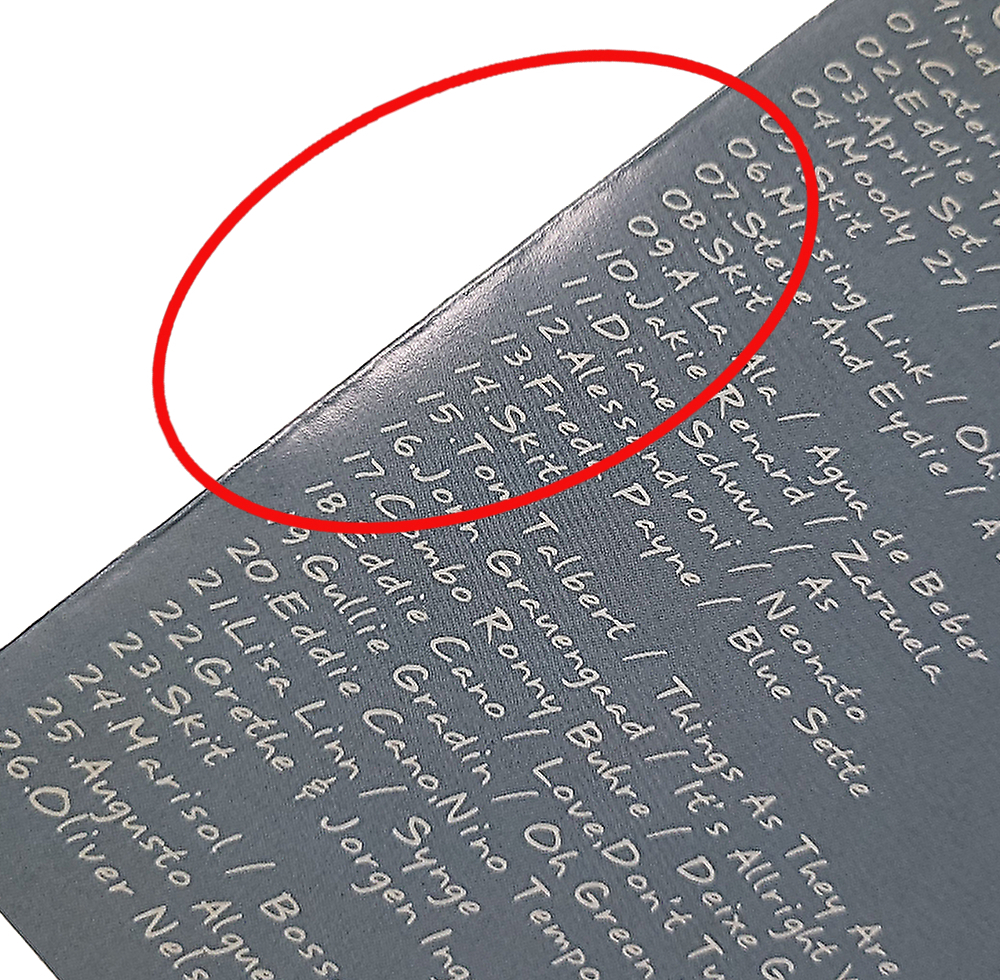 Mixed
01.Caterin
02.Eddie
03.April Set /
04.Moody 27 /
05.Skit
06.Missing Link / Oh.
07.Steve And Eydie /
08.Skit
09.A La Ala / Agua de Beber
10.Jakie Renard / Zarzuela
11.Diane Schuur / As
12.Alessandroni / Neonato
13.Fred Payne / Blue Sette
14.Skit
15.Tom Talbert / Things As They Are
16.Jorn Grauengaad / It's Allright
17.Combo Ronny Buhre / Deixe
18.Eddie Cano / Love.Don't
19.Gullie Gradin / Oh Green
20.Eddie Cano.Nino Tempo
21.Lisa Linn / Synge
22.Grethe & Jorgen Ing
23.Skit
24.Marisol / Boss
25.Augusto Algue
26.Oliver Nels